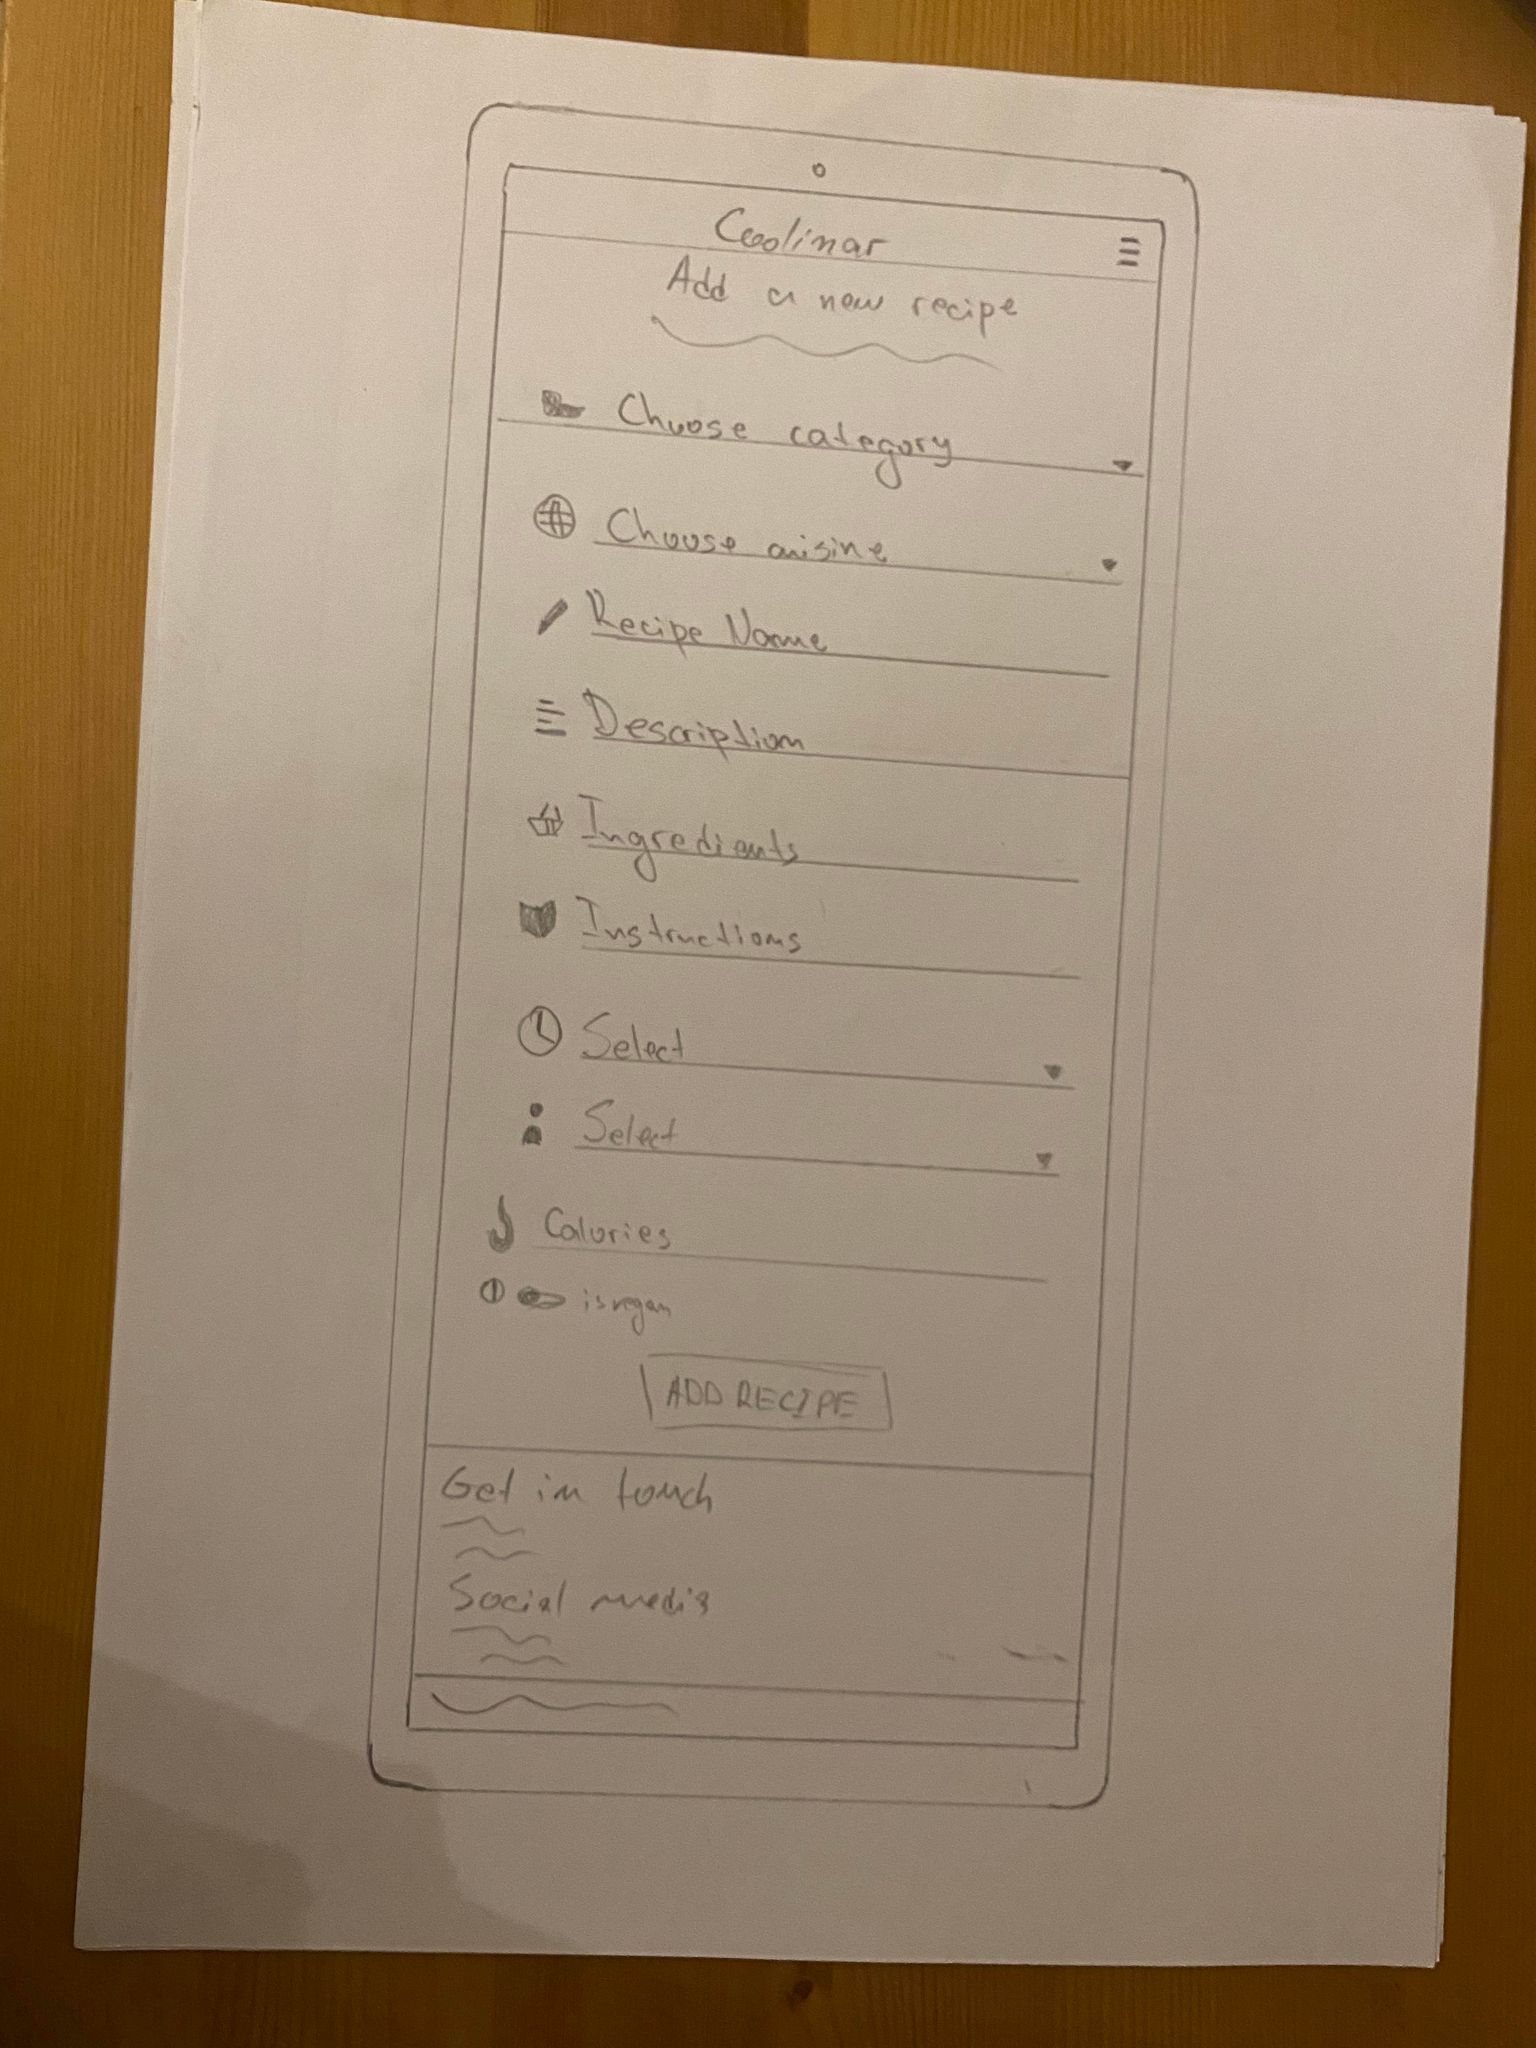 Coolinar
Add a new recipe
Choose category
Choose cuisine
Recipe Name
Description
Ingredients
Instructions
Select
Select
Calories
is vegan
ADD RECIPE
Get in touch
Social media